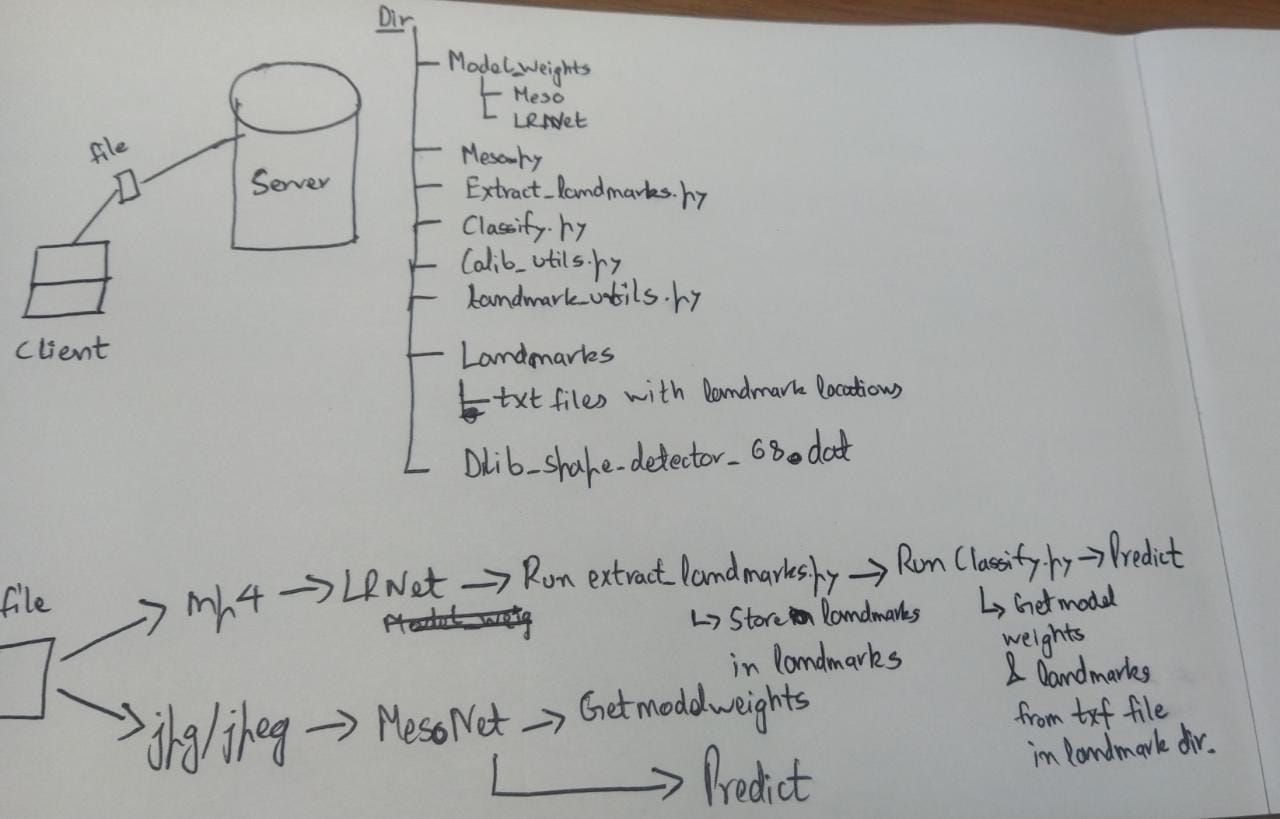 Dir
Model_weights
Meso
LRNet
Meso.py
Extract_landmarks.py
Classify.py
Calib_utils.py
Landmark_utils.py
Landmarks
txt files with landmark locations
Dlib_shape_detector_68.dat
file
Server
Client
file
mp4 → LRNet → Run extract_landmarks.py → Run Classify.py → Predict
Model_weig
↳ Store landmarks
in landmarks
↳ Get model
weights
& landmarks
from txt file
in landmark dir.
jpg/jpeg → MesoNet → Get model weights
Predict